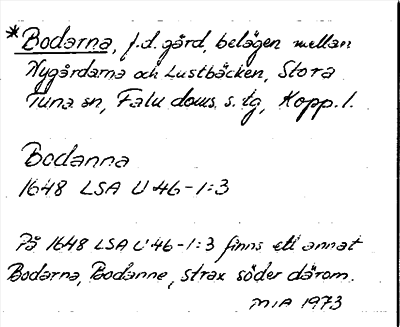 *Bodarna, f.d. gård, belägen mellan
Nygårdarna och Lustbäcken, Stora
Tuna sn, Falu doms. s. tg, Kopp. l.
Bodanna
1648 LSA U 46-1:3
På 1648 LSA U 46-1:3 finns ett annat
Bodarna, Bodanne, strax söder därom.
MIA 1973